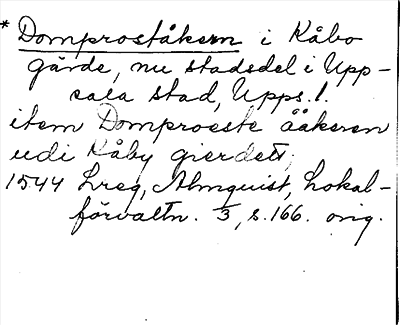 * Domproståkern i Kåbo
gärde, nu stadsdel i Upp-
sala stad, Upps. l.
item Domproeste ååkeren
udi Kåby gierdett,
1544 Lreg, Almquist, Lokal-
förvaltn. 3, s. 166. orig.